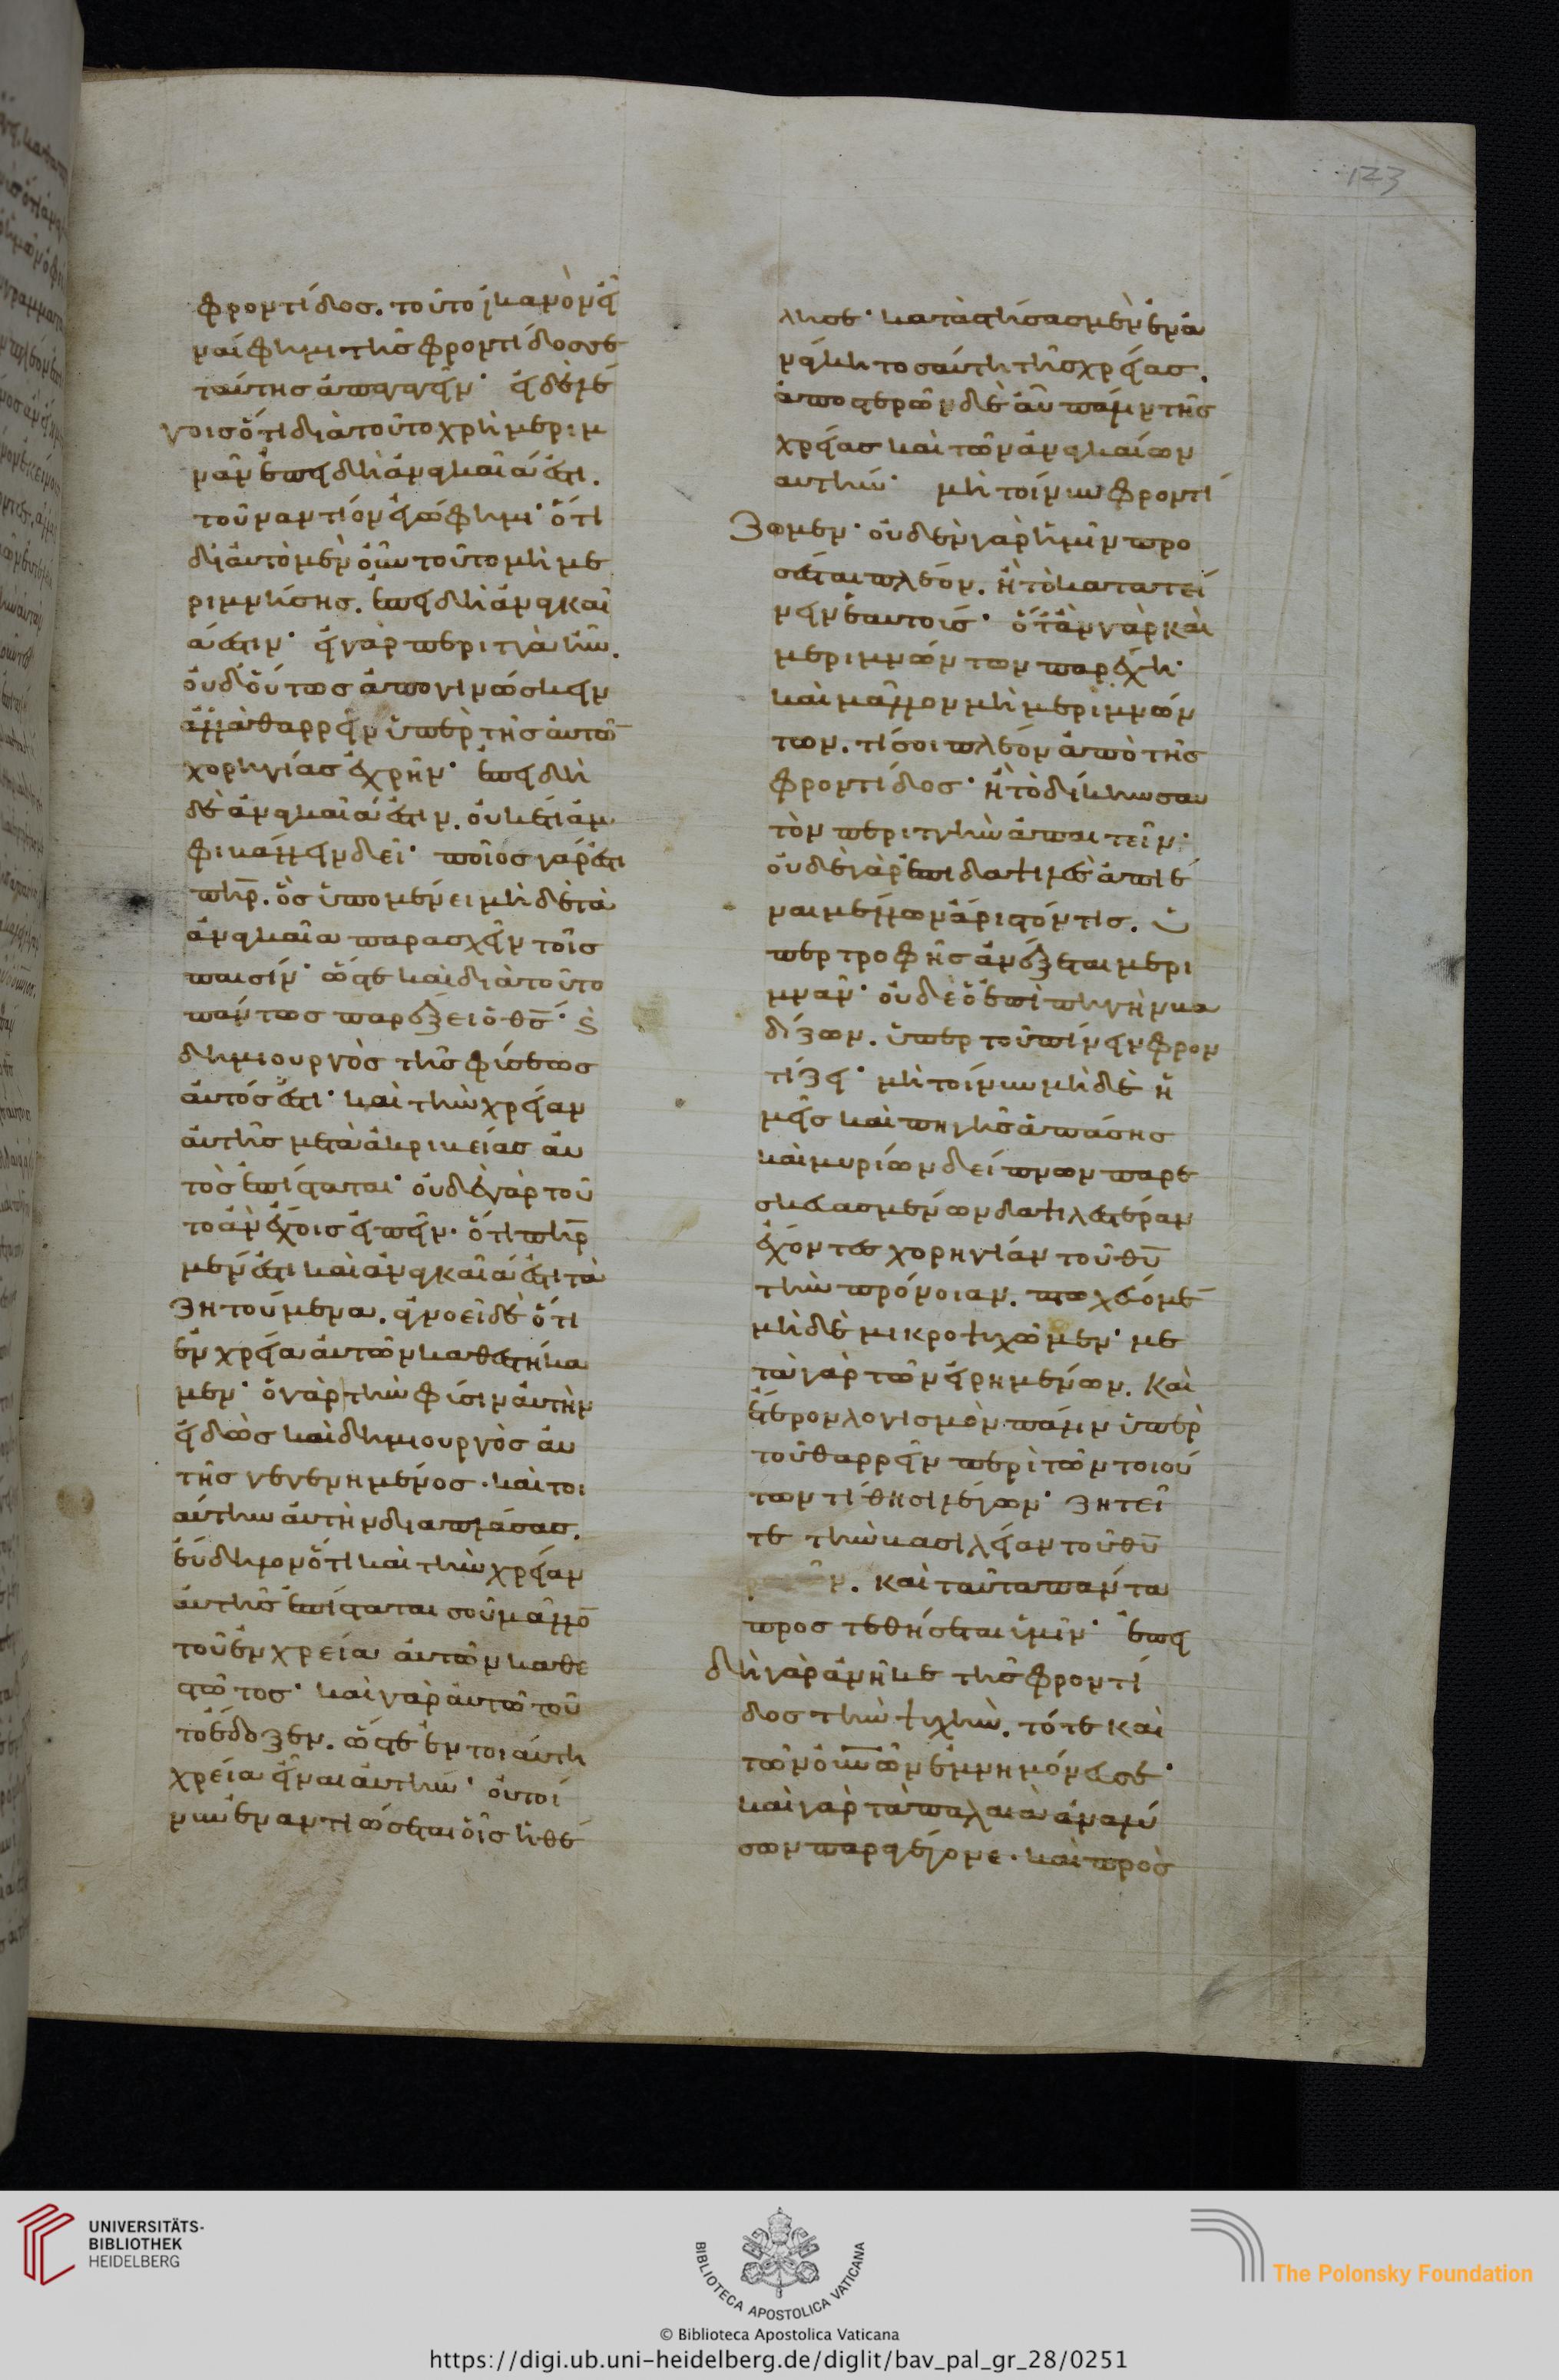 φροντίδος. τοῦτο ἱκανὸν εἶ
ναί φημι τῆς φροντίδος σε
ταύτης ἀπαγαγεῖν· εἰ δὲ λέ
γοις ὅτι διὰ τοῦτο χρὴ μεριμ
νᾶν ἐπειδὴ ἀναγκαῖά ἐστι.
τοὐναντίον ἐγώ φημι· ὅτι
δι' αὐτὸ μὲν οὖν τοῦτο μὴ με
ριμνήσης. ἐπειδὴ ἀναγκαῖ
ά ἐστιν· εἰ γὰρ περιττὰ ἦν.
οὐδ' οὕτως ἀπογινώσκειν
ἀλλὰ θαρρεῖν ὑπὲρ τῆς αὐτῶ̅
χορηγίας ἐχρῆν· ἐπειδὴ
δὲ ἀναγκαῖά ἐστιν. οὐκέτι ἀμ
φιβάλλειν δεῖ· ποῖος γάρ ἐστι
πη̅ρ̅. ὃς ὑπομένει μηδὲ τὰ
ἀναγκαῖα παρασχεῖν τοῖς
παισίν· ὥστε καὶ διὰ τοῦτο
πάντως παρέξει ὁ θ̅ς̅· ϗ̀
δημιουργὸς τῆς φύσεως
αὐτός ἐστι· καὶ τὴν χρείαν
αὐτῆς μετὰ ἀκριβείας αὐ
τὸς ἐπίσταται· οὐδὲ γὰρ τοῦ
το ἂν ἔχοις εἰπεῖν. ὅτι πη̅ρ̅
μέν ἐστι καὶ ἀναγκαῖά ἐστι τὰ
ζητούμενα. ἀγνοεῖ δὲ ὅτι
ἐν χρεία αὐτῶν καθεστήκα
μεν· ὁ γὰρ τὴν φύσιν αὐτὴν
εἰδὼς καὶ δημιουργὸς αὐ
τῆς γεγενημένος. καὶ τοι
αύτην αὐτὴν διαπλάσας.
εὔδηλον ὅτι καὶ τὴν χρείαν
αὐτῆς ἐπίσταται σοῦ μᾶλλο̅
τοῦ ἐν χρεία αὐτῶν καθε
στῶτος· καὶ γὰρ αὐτῶ τοῦ
το ἔδοξεν. ὥστε ἐν τοιαύτη
χρεία εἶναι αὐτήν· οὐ τοί
νυν ἐναντιώσεται οἷς ἠθέ
123
λησε· καταστήσας μὲν ἐν ἀ
νάγκη τοσαύτη τῆς χρείας.
ἀποστερῶν δὲ αὖ πάλιν τῆς
χρείας καὶ τῶν ἀναγκαίων
αὐτήν· μὴ τοίνυν φροντί
ζωμεν· οὐδὲν γὰρ ἡμῖν προ
σέσται πλέον. ἢ τὸ κατατεί
νειν ἑαυτούς· ὅταν γὰρ καὶ
μεριμνώντων παρέχη·
καὶ μᾶλλον μὴ μεριμνών
των. τί σοι πλέον ἀπὸ τῆς
φροντίδος· ἢ τὸ δίκην σαυ
τὸν περιττὴν ἀπαιτεῖν·
οὐδὲ γὰρ ἐπὶ δαψιλὲς ἀπιέ
ναι μέλλων ἄριστόν τις. ὑ
περ τροφῆς ἀνέξεται μερι
μνᾶν· οὐδὲ ὁ ἐπὶ πηγὴν βα
δίζων. ὑπὲρ τοῦ πίνειν φρον
τίζει· μὴ τοίνυν μηδὲ ἡ
μεῖς καὶ πηγῆς ἁπάσης
καὶ μυρίων δείπνων παρε
σκευασμένων δαψιλεστέραν
ἔχοντες χορηγίαν τοῦ θ̅υ̅
τὴν πρόνοιαν. πτωχεύομε̅
μηδὲ μικροψυχῶμεν· με
τὰ γὰρ τῶν εἰρημένων. καὶ
ἕτερον λογισμὸν πάλιν ὑπὲρ
τοῦ θαρρεῖν περὶ τῶν τοιού
των τίθησι λέγων· ζητεῖ
τε τὴν βασιλείαν τοῦ θ̅υ̅
καὶ ταῦτα πάντα
προστεθήσεται ὑμῖν· ἐπει
δὴ γὰρ ἀνῆκε τῆς φροντί
δος τὴν ψυχὴν. τότε καὶ
τῶν ο̅υ̅ν̅ῶν ἐμνημόνευσε·
καὶ γὰρ τὰ παλαιὰ ἀναλύ
σων παρεγένετο. καὶ πρὸς
UNIVERSITÄTS-
BIBLIOTHEK
HEIDELBERG
BIBLIOTECA APOSTOLICA VATICANA
The Polonsky Foundation
© Biblioteca Apostolica Vaticana
https://digi.ub.uni-heidelberg.de/diglit/bav_pal_gr_28/0251